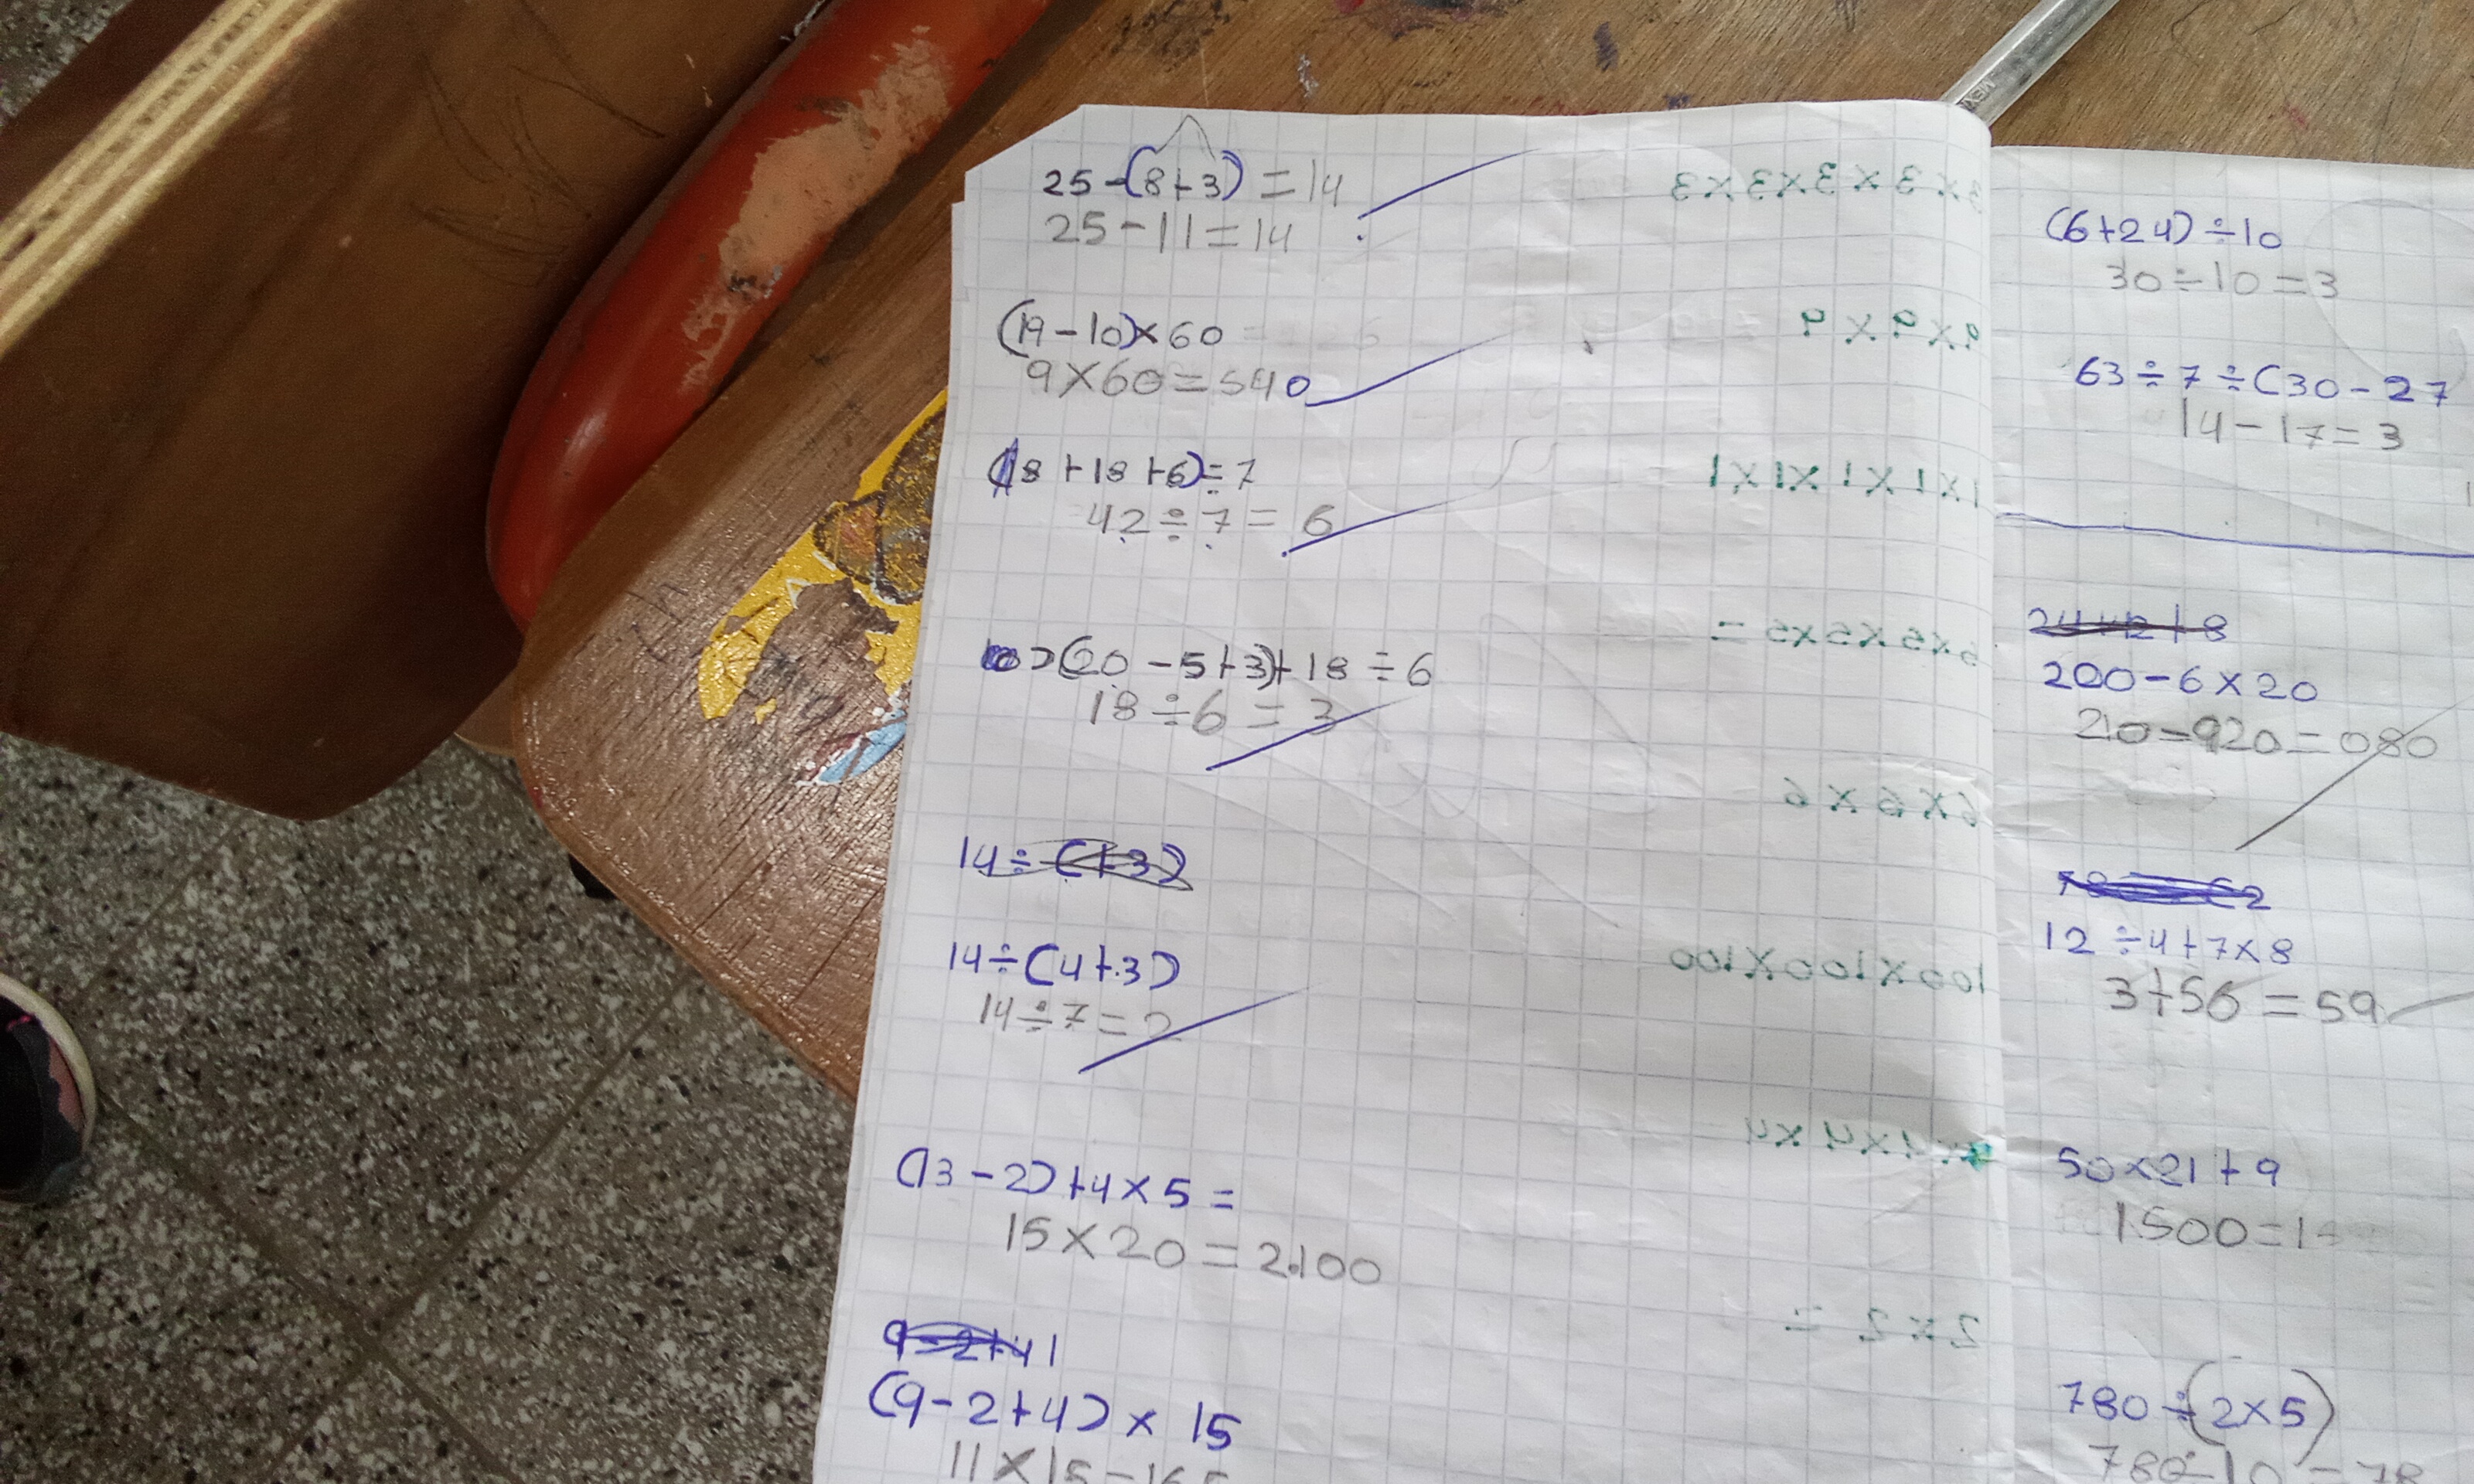 25-(8+3)=14
25-11=14
(19-10)×60
9×60=540
(18+18+6)÷7
42÷7=6
(20-5+3)+18÷6
18÷6=3
14÷(+3)
14÷(4+3)
14÷7=2
(13-2)+4×5=
15×20=2.100
9-2+41
(9-2+4)×15
11×15=165
3×3×3×3×3
9×9×9
1×1×1×1×1
5×5×5×5=
6×6×6
100×100×100
4×4×4
2×2=
(6+24)÷10
30÷10=3
63÷7÷(30-27
14-17=3
200-6×20
210-920=080
12÷4+7×8
3+56=59
50×21+9
1500=1
780÷(2×5)
780÷10=78